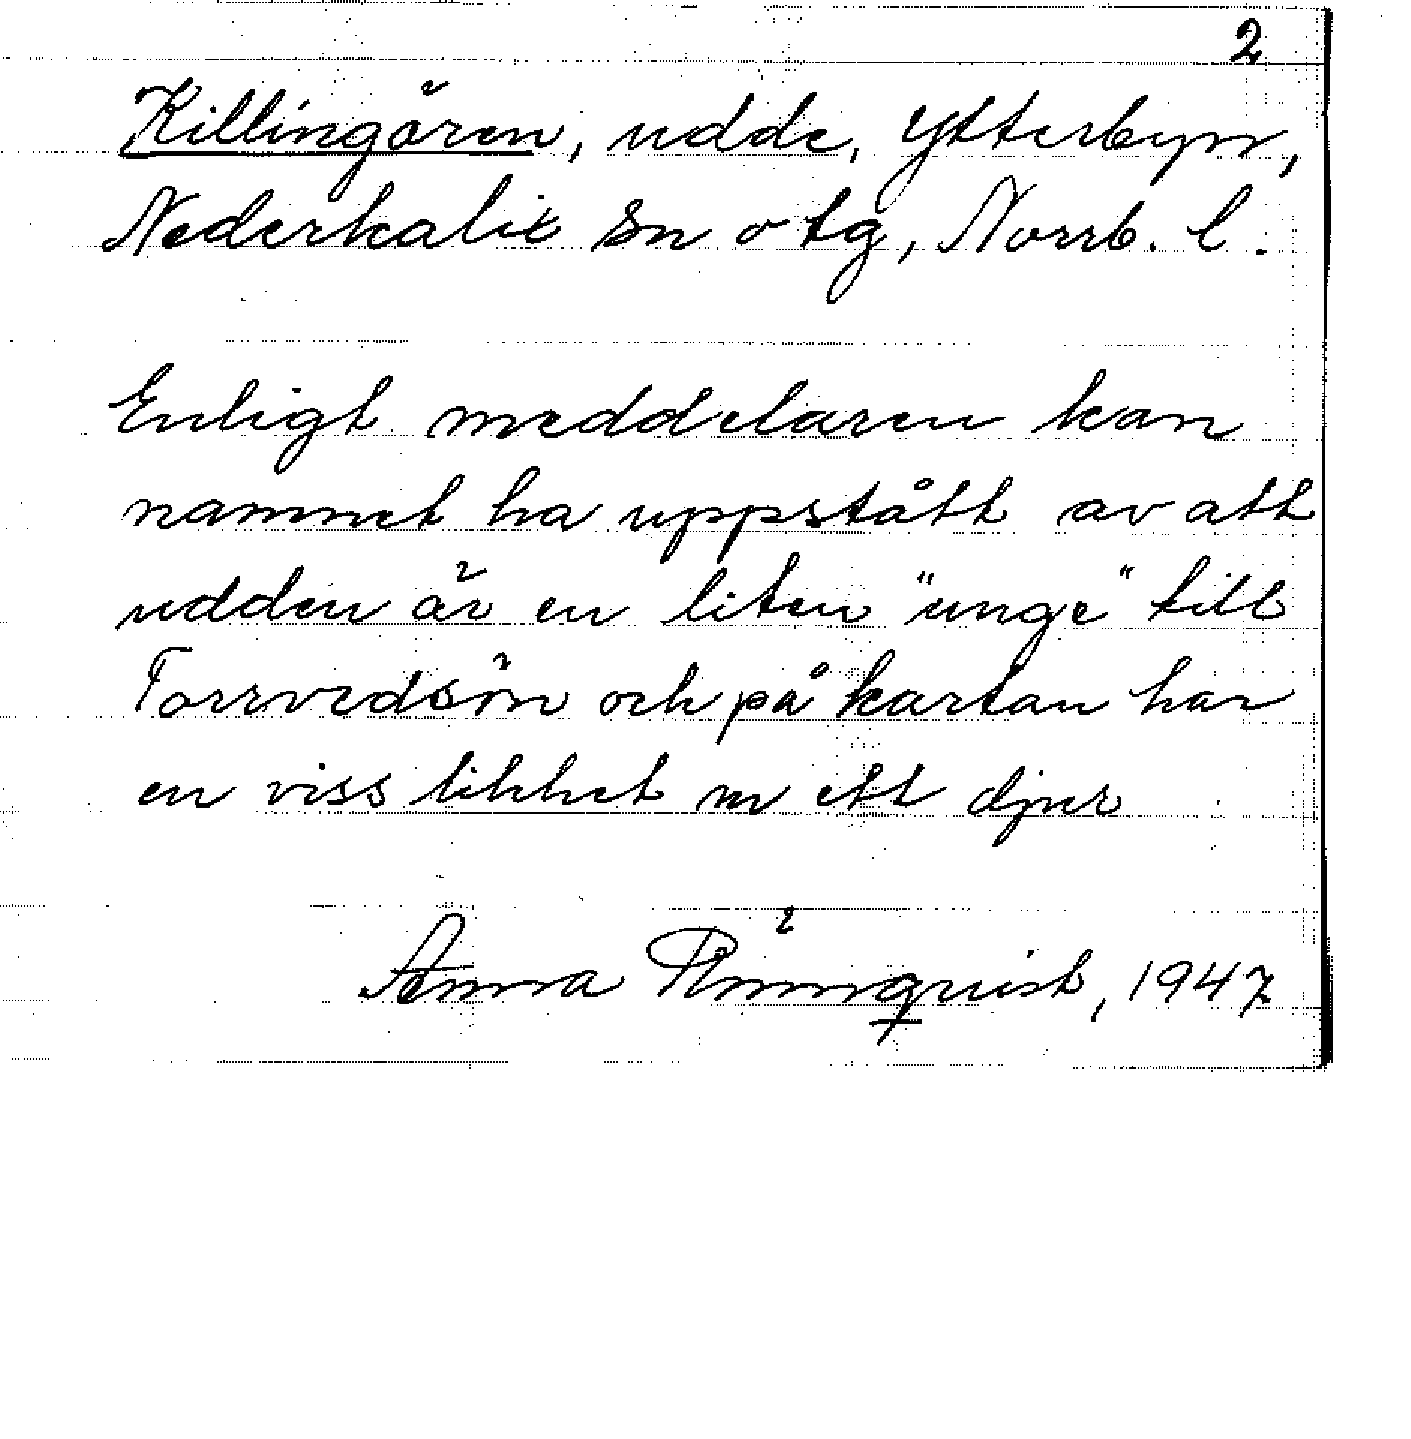 2
Killingören, udde, Ytterbyn,
Nederkalix sn o tg, Norrb. l.
Enligt meddelaren kan
namnet ha uppstått av att
udden är en liten "unge" till
Torrvedsön och på kartan har
en viss likhet m ett djur
Anna Rönnquist, 1947